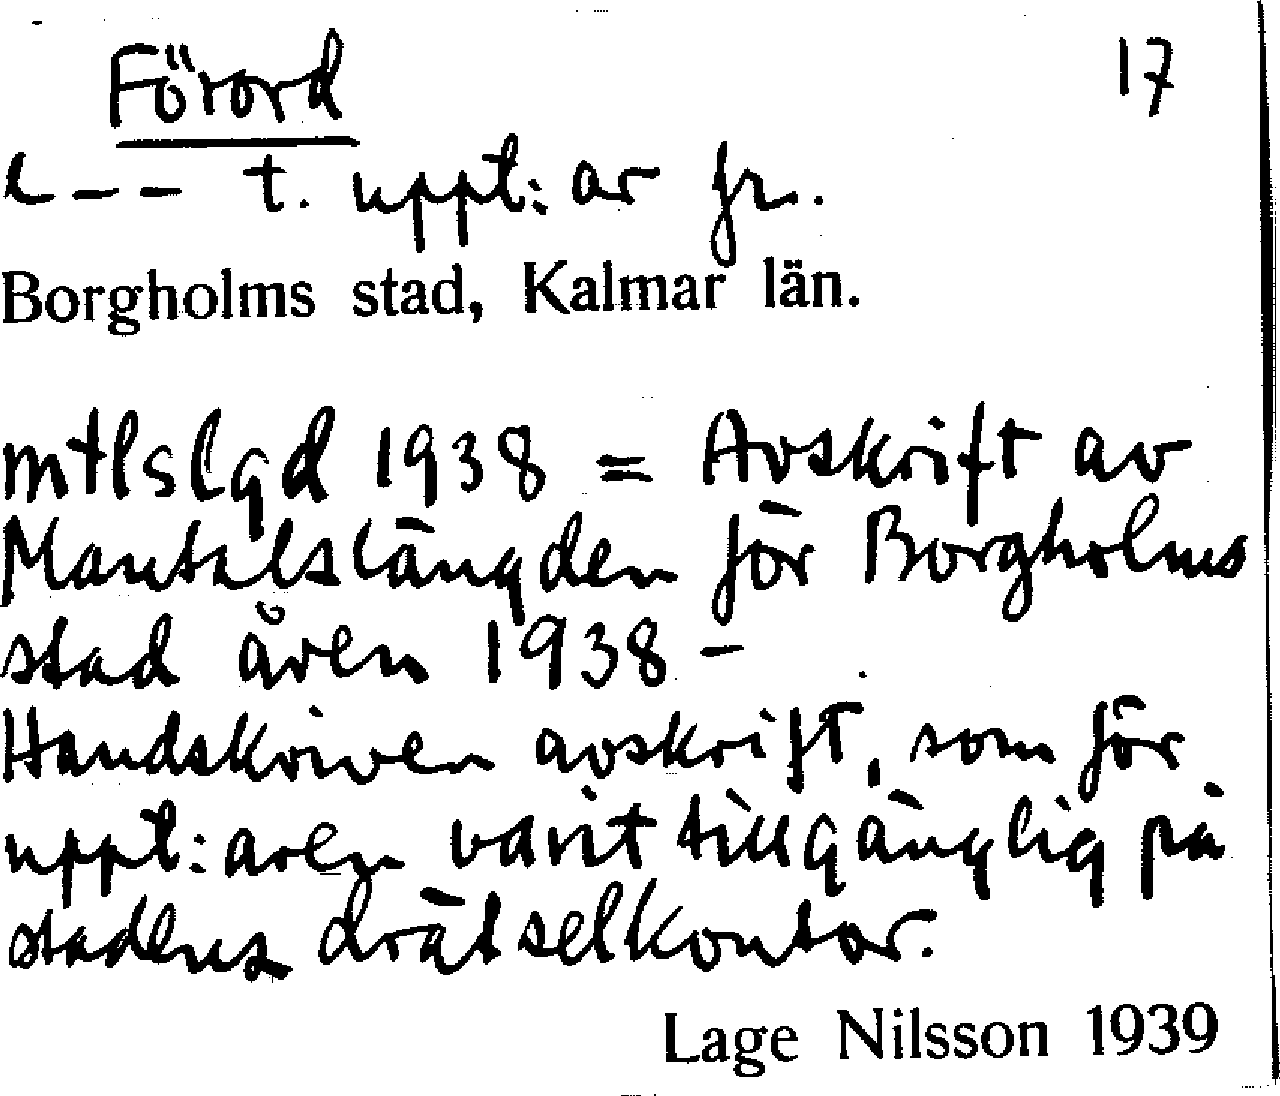 Förord 17
l - - - t. uppt:ar fr.
Borgholms stad, Kalmar län.
mtlslgd 1938 = Avskrift av
Mantalslängden för Borgholms
stad åren 1938 -
Handskriven avskrift, som för
uppt:aren varit tillgänglig på
stadens drätselkontor.
Lage Nilsson 1939